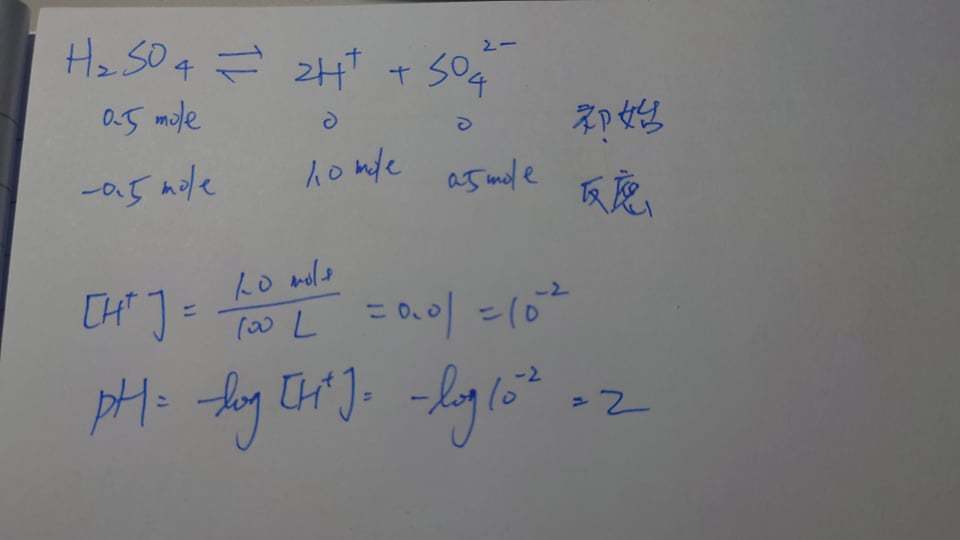 H₂SO₄ ⇌ 2H⁺ + SO₄²⁻
0.5 mole 0 0 初始
-0.5 mole 1.0 mole 0.5 mole 反應
[H⁺] = 1.0 mole / 100 L = 0.01 = 10⁻²
pH = -log [H⁺] = -log 10⁻² = 2